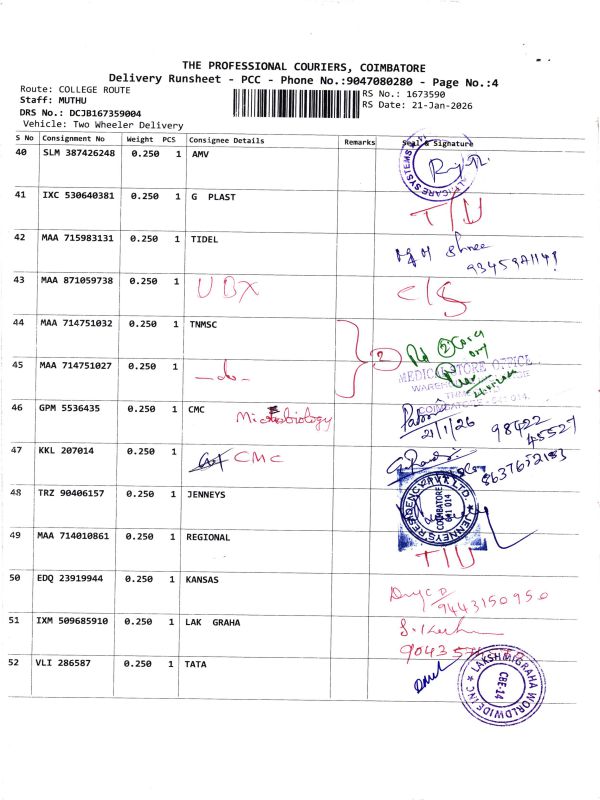 THE PROFESSIONAL COURIERS, COIMBATORE
Delivery Runsheet - PCC - Phone No.:9047080280 - Page No.:4
Route: COLLEGE ROUTE
RS No.: 1673590
Staff: MUTHU
RS Date: 21-Jan-2026
DRS No.: DCJB167359004
Vehicle: Two Wheeler Delivery
S No Consignment No Weight PCS Consignee Details Remarks Seal & Signature
40 SLM 387426248 0.250 1 AMV
41 IXC 530640381 0.250 1 G PLAST T/U
42 MAA 715983131 0.250 1 TIDEL
43 MAA 871059738 0.250 1 UBX C/S
44 MAA 714751032 0.250 1 TNMSC
2
45 MAA 714751027 0.250 1 -do-
MEDICAL STORE OFFICE
COIMBATORE - 641 014.
46 GPM 5536435 0.250 1 CMC Microbiology
21/1/26 98422
45527
47 KKL 207014 0.250 1 CMC
48 TRZ 90406157 0.250 1 JENNEYS
JENNEYS RESIDENCY PVT. LTD.
COIMBATORE
641 014
49 MAA 714010861 0.250 1 REGIONAL T/U
50 EDQ 23919944 0.250 1 KANSAS
9443150950
51 IXM 509685910 0.250 1 LAK GRAHA
52 VLI 286587 0.250 1 TATA
LAKSHMIGRAHA WORLDWIDE INC
CBE-14